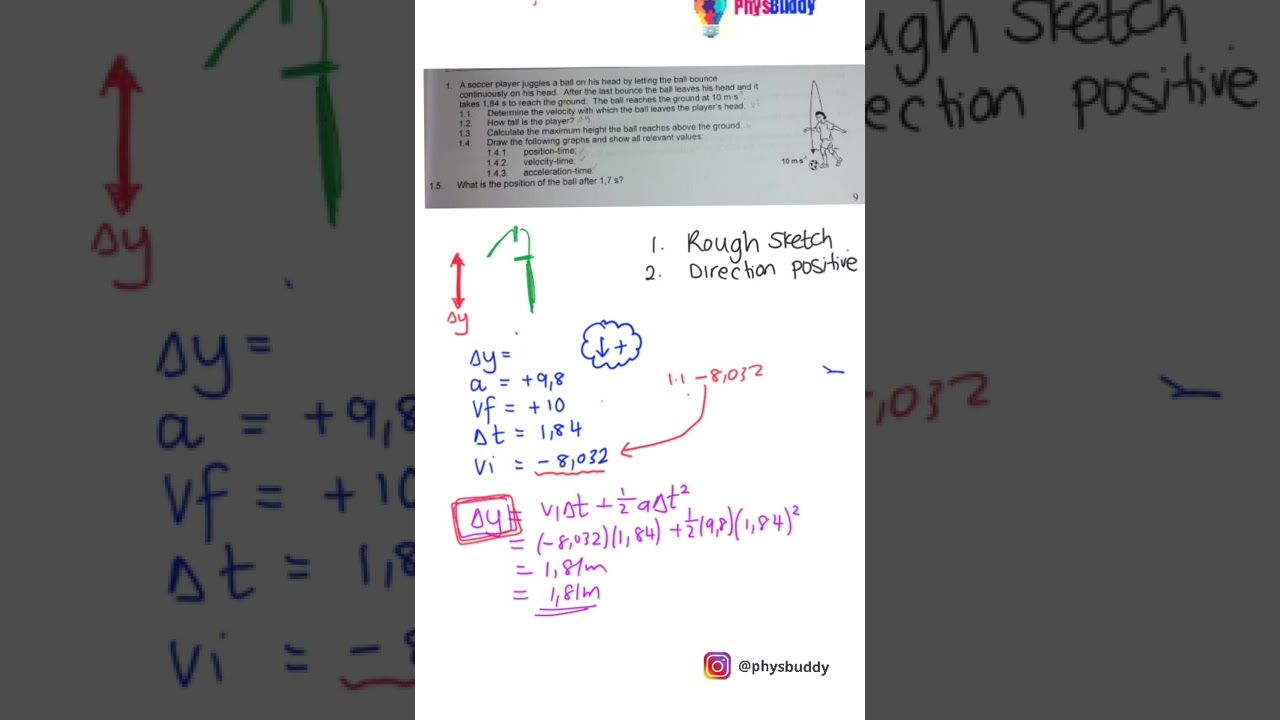 PhysBuddy
1. A soccer player juggles a ball on his head by letting the ball bounce
continuously on his head. After the last bounce the ball leaves his head and it
takes 1,84 s to reach the ground. The ball reaches the ground at 10 m·s⁻
1.1. Determine the velocity with which the ball leaves the player's head.
1.2. How tall is the player?
1.3. Calculate the maximum height the ball reaches above the ground.
1.4. Draw the following graphs and show all relevant values:
1.4.1. position-time;
1.4.2. velocity-time;
1.4.3. acceleration-time.
1.5. What is the position of the ball after 1,7 s?
10 m·s⁻¹
9
1. Rough sketch
2. Direction positive
Δy
Δy =
↓+
a = +9,8
1.1 -8,032
Vf = +10
Δt = 1,84
Vi = -8,032
Δy = ViΔt + ½aΔt²
= (-8,032)(1,84) + ½(9,8)(1,84)²
= 1,81m
= 1,81m
@physbuddy
ugh sketch
ection positive
Δy
Δy =
a = +9,8
,032
Vf = +10
Δt = 1,8
Vi = -8